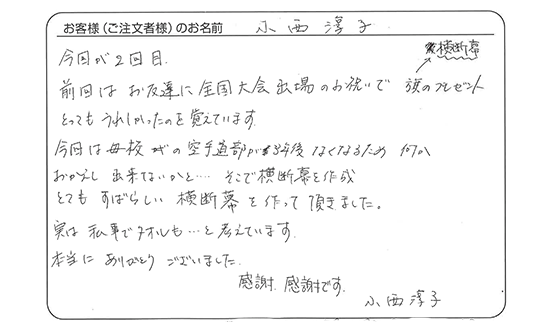 お客様(ご注文者様)のお名前 小西淳子
今回が2回目.
横断幕
前回は お友達に全国大会出場のお祝いで 旗のプレゼント
とってもうれしかったのを覚えています.
今回は母校の空手道部が3年後 なくなるため 何か
おかえし 出来ないかと…. そこで横断幕を作成
とても すばらしい 横断幕を作って頂きました。
実は 私事でタオルも…と考えています.
本当に ありがとう ございました.
感謝. 感謝です.
小西淳子